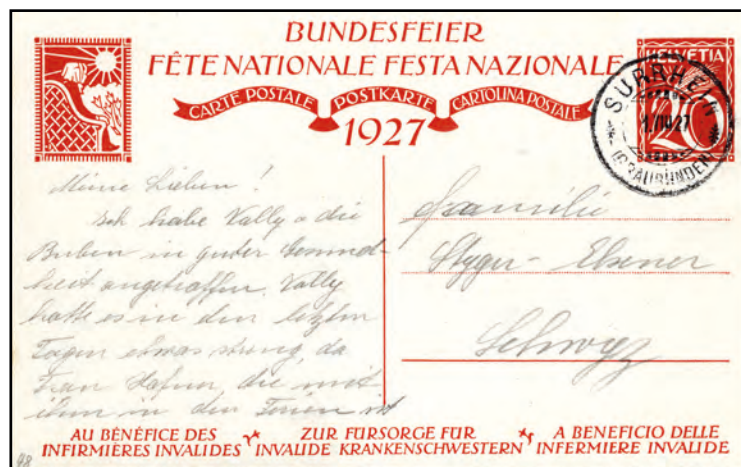 BUNDESFEIER
FÊTE NATIONALE FESTA NAZIONALE
CARTE POSTALE POSTKARTE CARTOLINA POSTALE
1927
HELVETIA
20
SURRHEIN
(GRAUBÜNDEN)
Meine Lieben!
Ich habe Vally & die
Buben in guter Gesund-
heit angetroffen. Vally
hatte es in den letzten
Tagen etwas streng, da
Frau Hafner, die mit
ihm in den Ferien ist
Familie
Styger-Elsener
Schwyz
AU BÉNÉFICE DES
INFIRMIÈRES INVALIDES
ZUR FÜRSORGE FÜR
INVALIDE KRANKENSCHWESTERN
A BENEFICIO DELLE
INFERMIERE INVALIDE
98